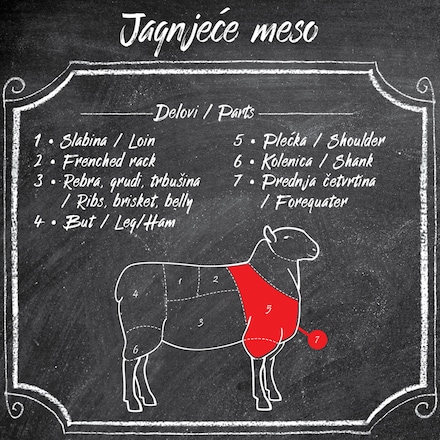 Jagnjeće meso
Delovi / Parts
1 • Slabina / Loin
2 • Frenched rack
3 • Rebra, grudi, trbušina
/ Ribs, brisket, belly
4 • But / Leg/Ham
5 • Plećka / Shoulder
6 • Kolenica / Shank
7 • Prednja četvrtina
/ Forequater
1
2
3
4
5
6
7